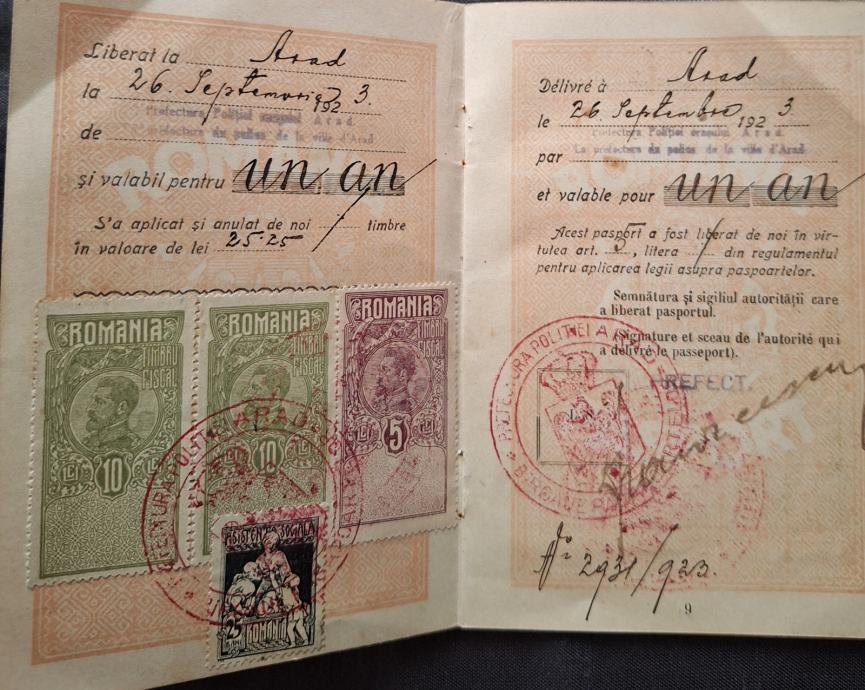 Liberat la Arad
la 26. Septemvrie 192 3.
Prefectura Poliției orașului Arad.
de La préfecture de police de la ville d'Arad
și valabil pentru un an
S'a aplicat și anulat de noi timbre
în valoare de lei 25·25
ROMANIA
TIMBRU
FISCAL
LEI 10 LEI
ROMANIA
FISCAL
LEI 10 LEI
ROMANIA
TIMBRU
FISCAL
LEI 5 LEI
ASISTENȚA SOCIALA
25 BANI ROMANIA
Délivré à Arad
le 26. Septembre 192 3
Prefectura Poliției orașului Arad.
par La préfecture de police de la ville d'Arad
et valable pour un an
Acest pasport a fost liberat de noi în vir-
tutea art. 2, litera din regulamentul
pentru aplicarea legii asupra paspoartelor.
Semnătura și sigiliul autorității care
a liberat pasportul.
(Signature et sceau de l'autorité qui
a délivré le passeport).
PREFECT.
PREFECTURA POLITIEI ARAD
No 2931/923.
9